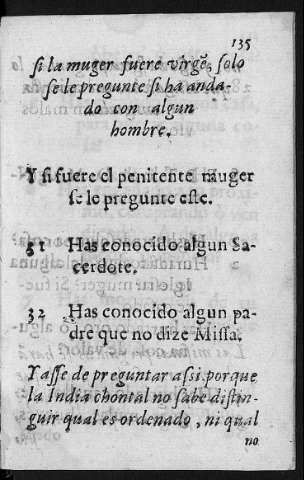 135
si la muger fuere virgẽ, solo
se le pregunte si ha anda-
do con algun
hombre.
Y si fuere el penitente muger
se le pregunte este.
31 Has conocido algun Sa-
cerdote.
32 Has conocido algun pa-
dre que no dize Missa.
Y asse de preguntar assi porque
la India chontal no sabe distin-
guir qual es ordenado, ni qual
no